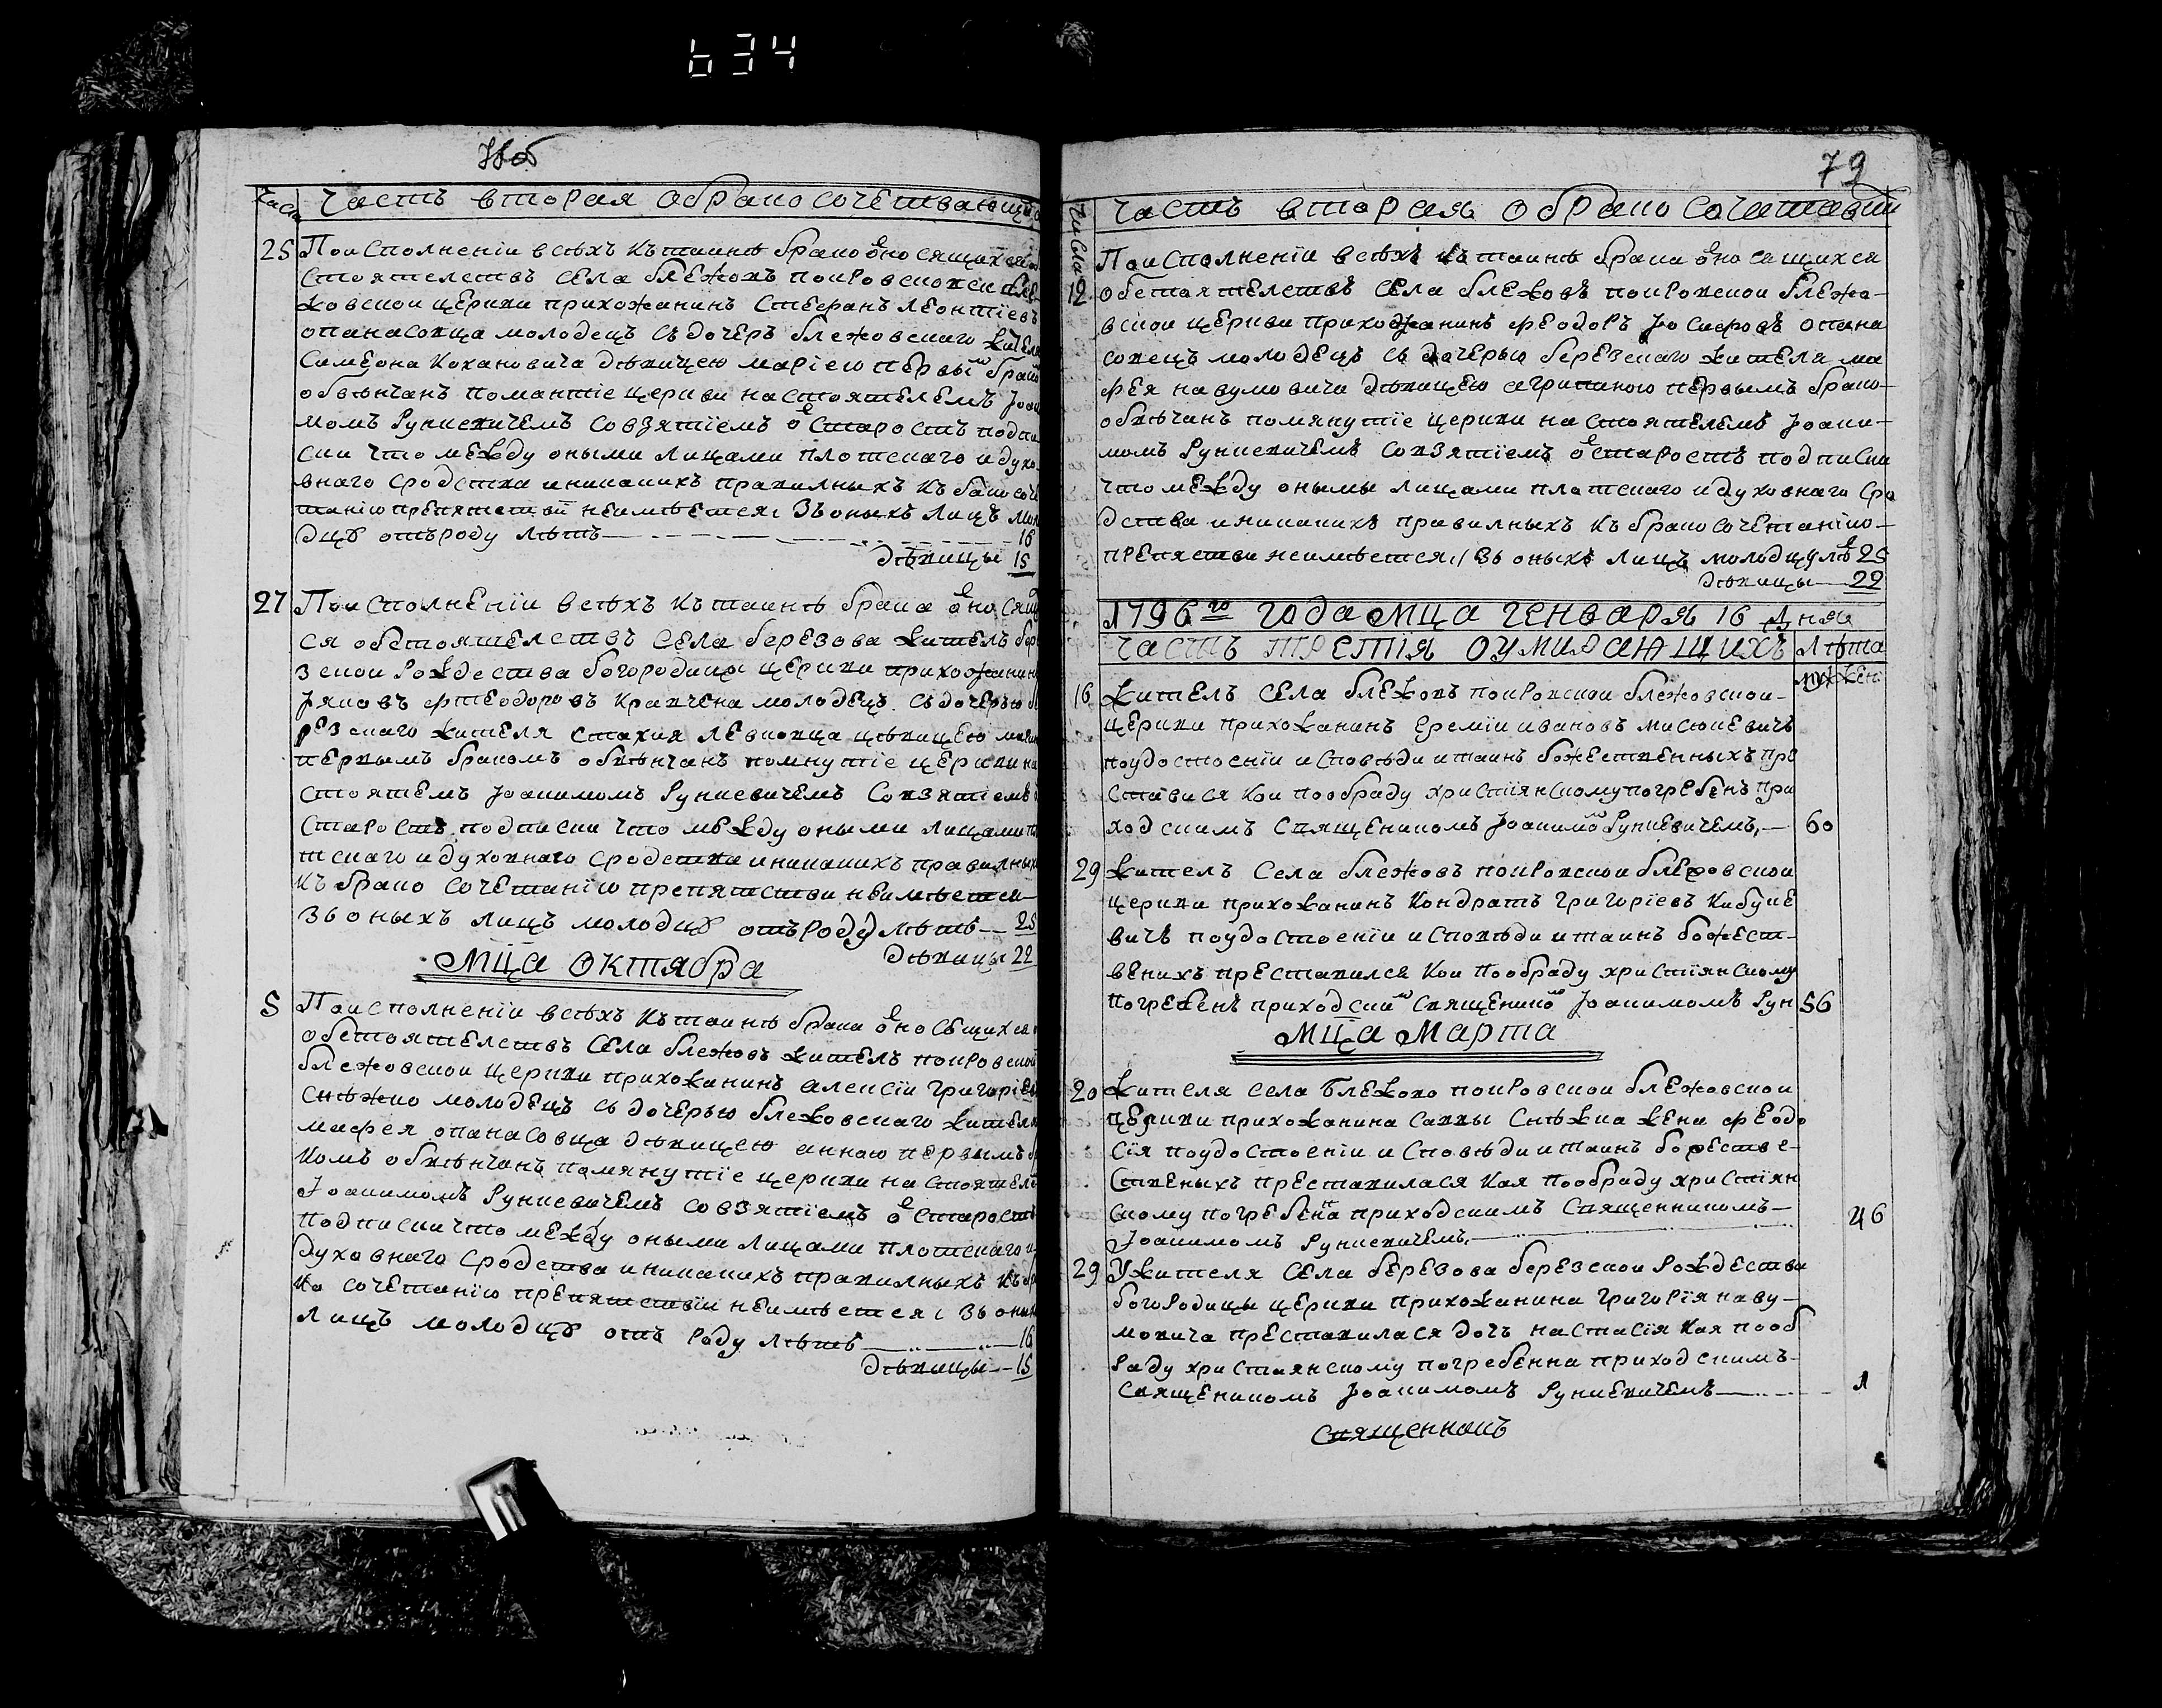 634
Часть вторая обрако сочетвающи
25 Поисполненіи всѣхъ къ таинѣ брако ѡносящихся
стоятелствъ села блежовъ покровской бле
жовской церкви прихожанинъ Стефанъ Леонтіевъ
опанасовца молодецъ съ дочеръ блежовскаго жителя
Симеона Кохановича дѣвицею маріею первы браком
обвѣнчанъ помянтіе церкви настоятелемъ Іоаки
момъ Рункевичемъ совзятіемъ ѿ старостъ подпи
ски что между оными лицами плотскаго и духо
внаго сродства и никакихъ правилныхъ къ бако соче
танію препятствій неимѣется изъ оныхъ лицъ моло
дцу отъ роду лѣтъ 16
дѣвицы 15
27 Поисполненіи всѣхъ къ таинѣ брака ѿносящи
ся обстоятелствъ села березова жителъ бере
зской Рождества богородицы церкви прихожанинъ
Іяковъ фтеодоровъ Кравчена молодецъ съ дочерью бе
резскаго жителя стахия левковца цѣвицею
первымъ бракомъ обвѣнчанъ помнутіе церкви на
стоятемъ Іоакимомъ Рункевичемъ Совзятіемъ
старостъ подписки что между оными лицами пло
тскаго и духовнаго сродства и никакихъ правилныхъ
къ брако сочетанію препятстви неимѣется
зъ оныхъ лицъ молодцу отъ роду лѣтъ 25
дѣвицы 22
Мца октября
5 Поисполненіи всѣхъ къ таинѣ брака ѿносящихся
обстоятелствъ Села блежовъ жителъ покровской
блежовской церкви прихожанинъ алексіи григоріевъ
Снѣжко молодецъ съ дочерью блежовскаго жителя
мафея опанасовца дѣвицею анною первымъ бра
комъ обвѣнчанъ помянутіе церкви настоятелем
Іоакимомъ Рункевичемъ совзятіемъ ѿ старостъ
подписки что между оными лицами плотскаго и
духовнаго сродства и никакихъ правилныхъ къ бр
ко сочетанію препятствіи неимѣется изъ оных
лицъ молодцу отъ роду лѣтъ 16
дѣвицы 15
79
Числа Часть вторая обрако сочатавши
Поисполненіи всѣхъ къ таинѣ брака ѿносящихся
12 обстоятелствъ села блежовъ покровской блежо-
вской церкви прихожанинъ феодоръ Іосифовъ опана
совецъ молодецъ съ дочерью березскаго жителя ма
фея навумовича дѣвицею агрипиною первымъ брако-
обвѣчанъ помянутіе церкви настоятелемъ Іоаки-
момъ Рункевичемъ совзятіемъ ѿ старостъ подписки
что между онымы лицами платскаго и духовнаго сро
дства и никакихъ правилныхъ къ брако сочетанію-
препястви неимѣется изъ оныхъ лицъ молодцу лѣ 25
дѣвицы 22
1796го года мца генваря 16 дня
часть третія оумирающихъ Лѣта
муж жен
16 жителъ села блежовъ покровской блежовской-
церкви прихожанинъ еремій ивановъ мисюкевичъ
поудостоеніи исповѣди и таинъ божественныхъ пре
ставися кои пообраду христіянскому погребенъ при
ходскимъ священикомъ Іоакимо Рункевичемъ, 60
29 жителъ села блежовъ покровской блежовской
церкви прихожанинъ Кондратъ григоріевъ Кибуке
вичъ поудостоеніи исповѣди и таинъ божест-
веныхъ преставился кои пообраду христіянскому
погребенъ приходским священико Іоакимомъ Рун 56
Мца Марта
20 жителя села блежово покровской блежовской
церкви прихожанина саввы Снѣжка жена феодо
сія поудостоеніи исповѣди и таинъ божестве-
ственыхъ преставилася кая пообраду христіян
скому погребена приходскимъ священникомъ-
Іоакимомъ Рункевичемъ 46
29 У жителя села березова березской рождества
богородицы церкви прихожанина григорія наву-
мовича преставилася дочъ настасія кая пооб
раду християнскому погребенна приходскимъ-
священикомъ Іоакимомъ Рункевичемъ 1
священномъ